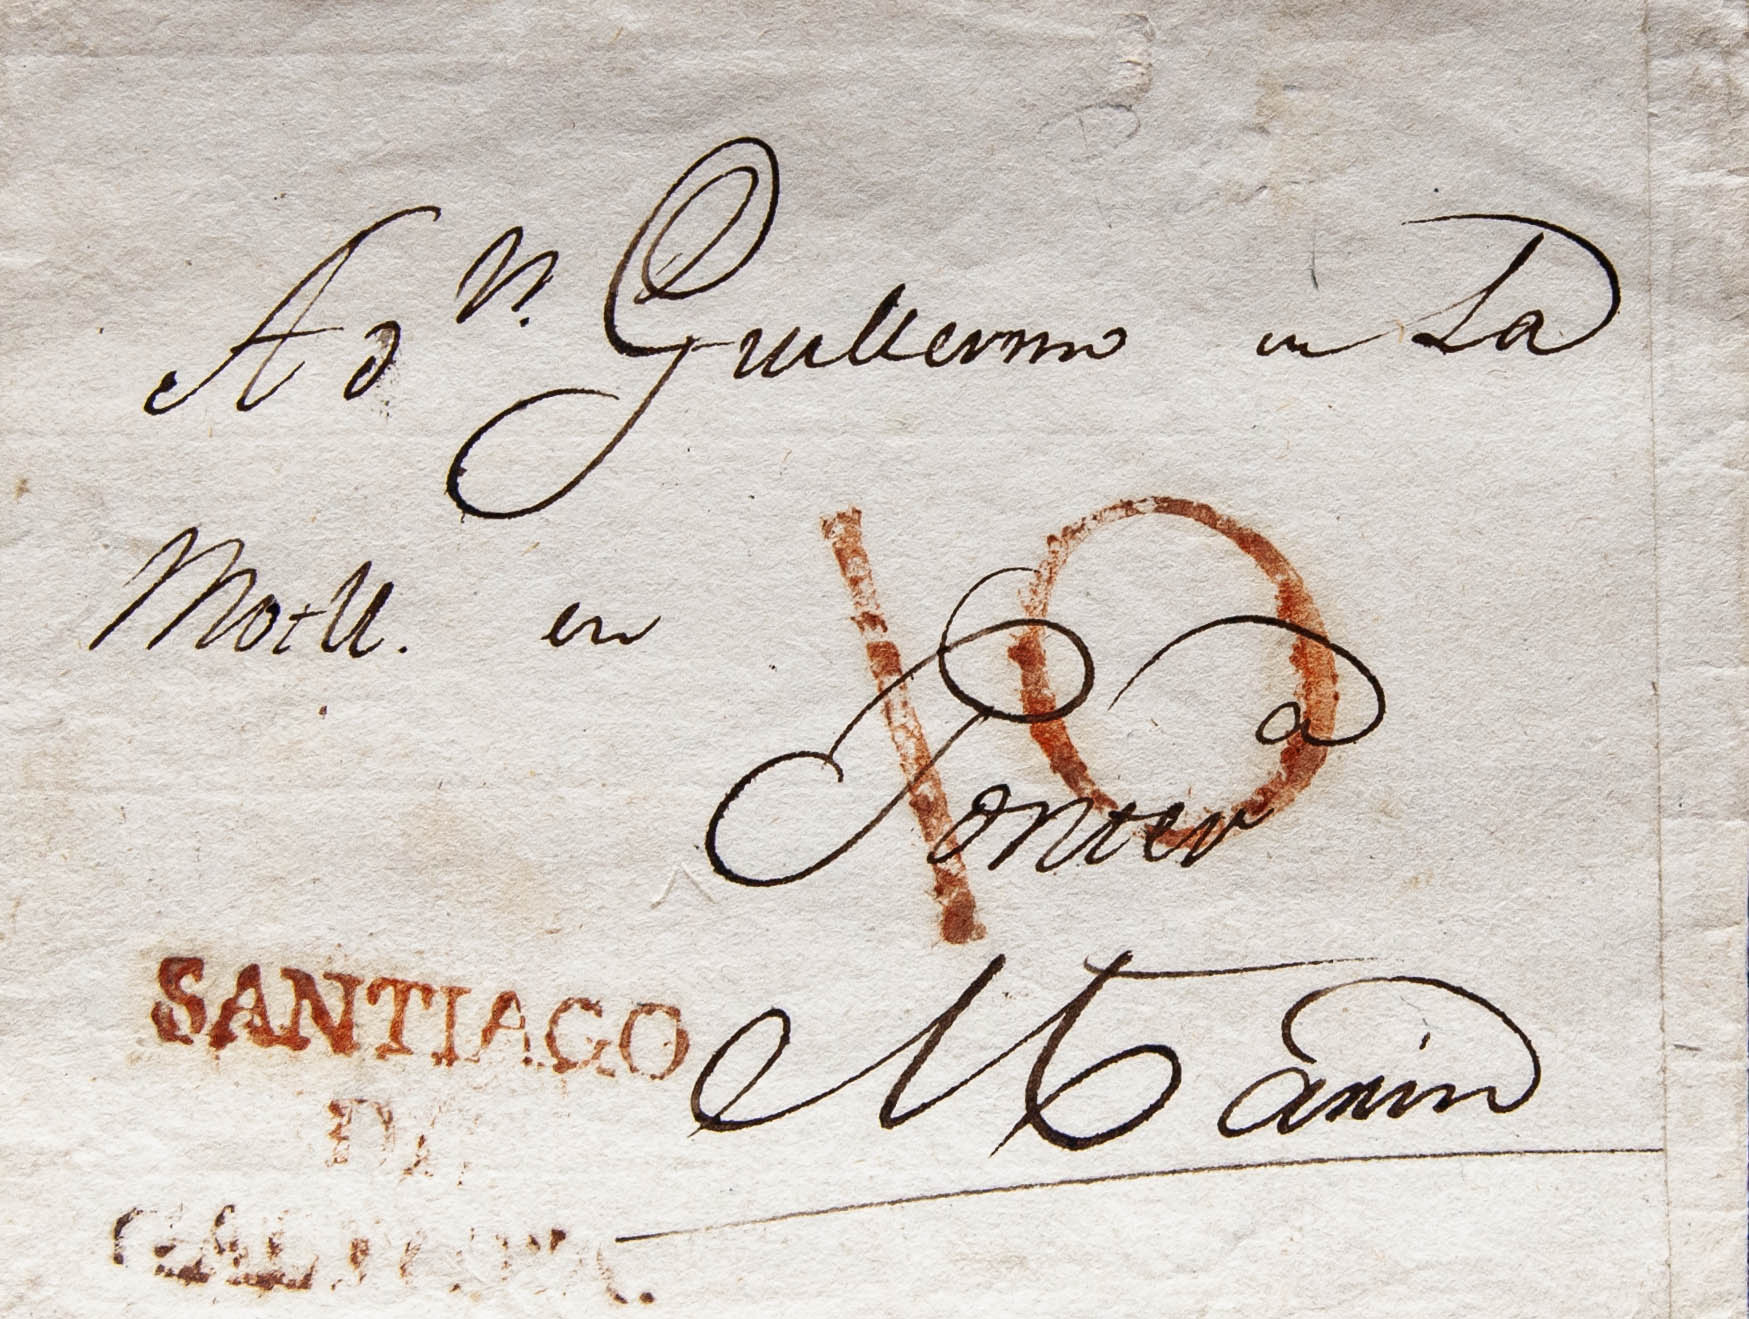 A dn. Guillermo en La
Motte. en
10
Pontevª
Marin
SANTIAGO
DE
GALICIA.